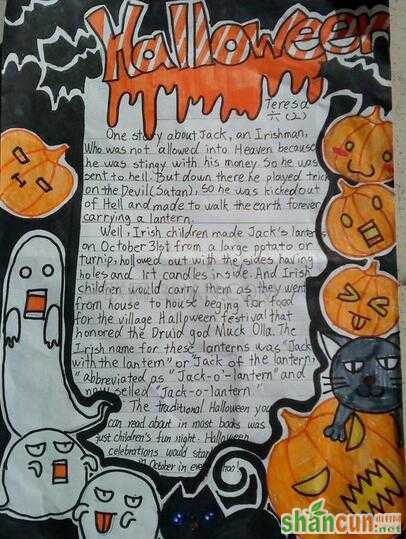 Halloween
Teresa
六(2)
One story about Jack, an Irishman,
Who was not allowed into Heaven because
he was stingy with his money. So he was
sent to hell. But down there he played trick
on the Devil(Satan), So he was kicked out
of Hell and made to walk the earth forever
carrying a lantern.
Well, Irish children made Jack's lanterns
on October 31st from a large potato or
turnip, hollowed out with the sides having
holes and lit candles inside. And Irish
children would carry them as they went
from house to house beging for food
for the village Halloween festival that
honored the Druid god Muck Olla. The
Irish name for these lanterns was "Jack
with the lantern" or "Jack of the lantern,
"abbreviated as "Jack-o'-lantern" and
now selled "Jack-o-lantern."
The traditional Halloween you
can read about in most books was
just children's fun night. Halloween
celebrations would start
October in every
shancun
.net